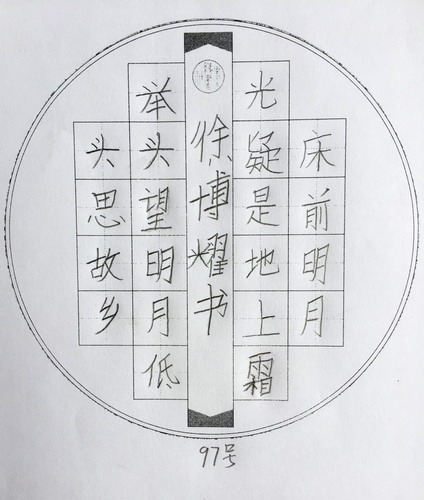 床前明月
光疑是地上霜
徐博耀书
举头望明月低
头思故乡
97号